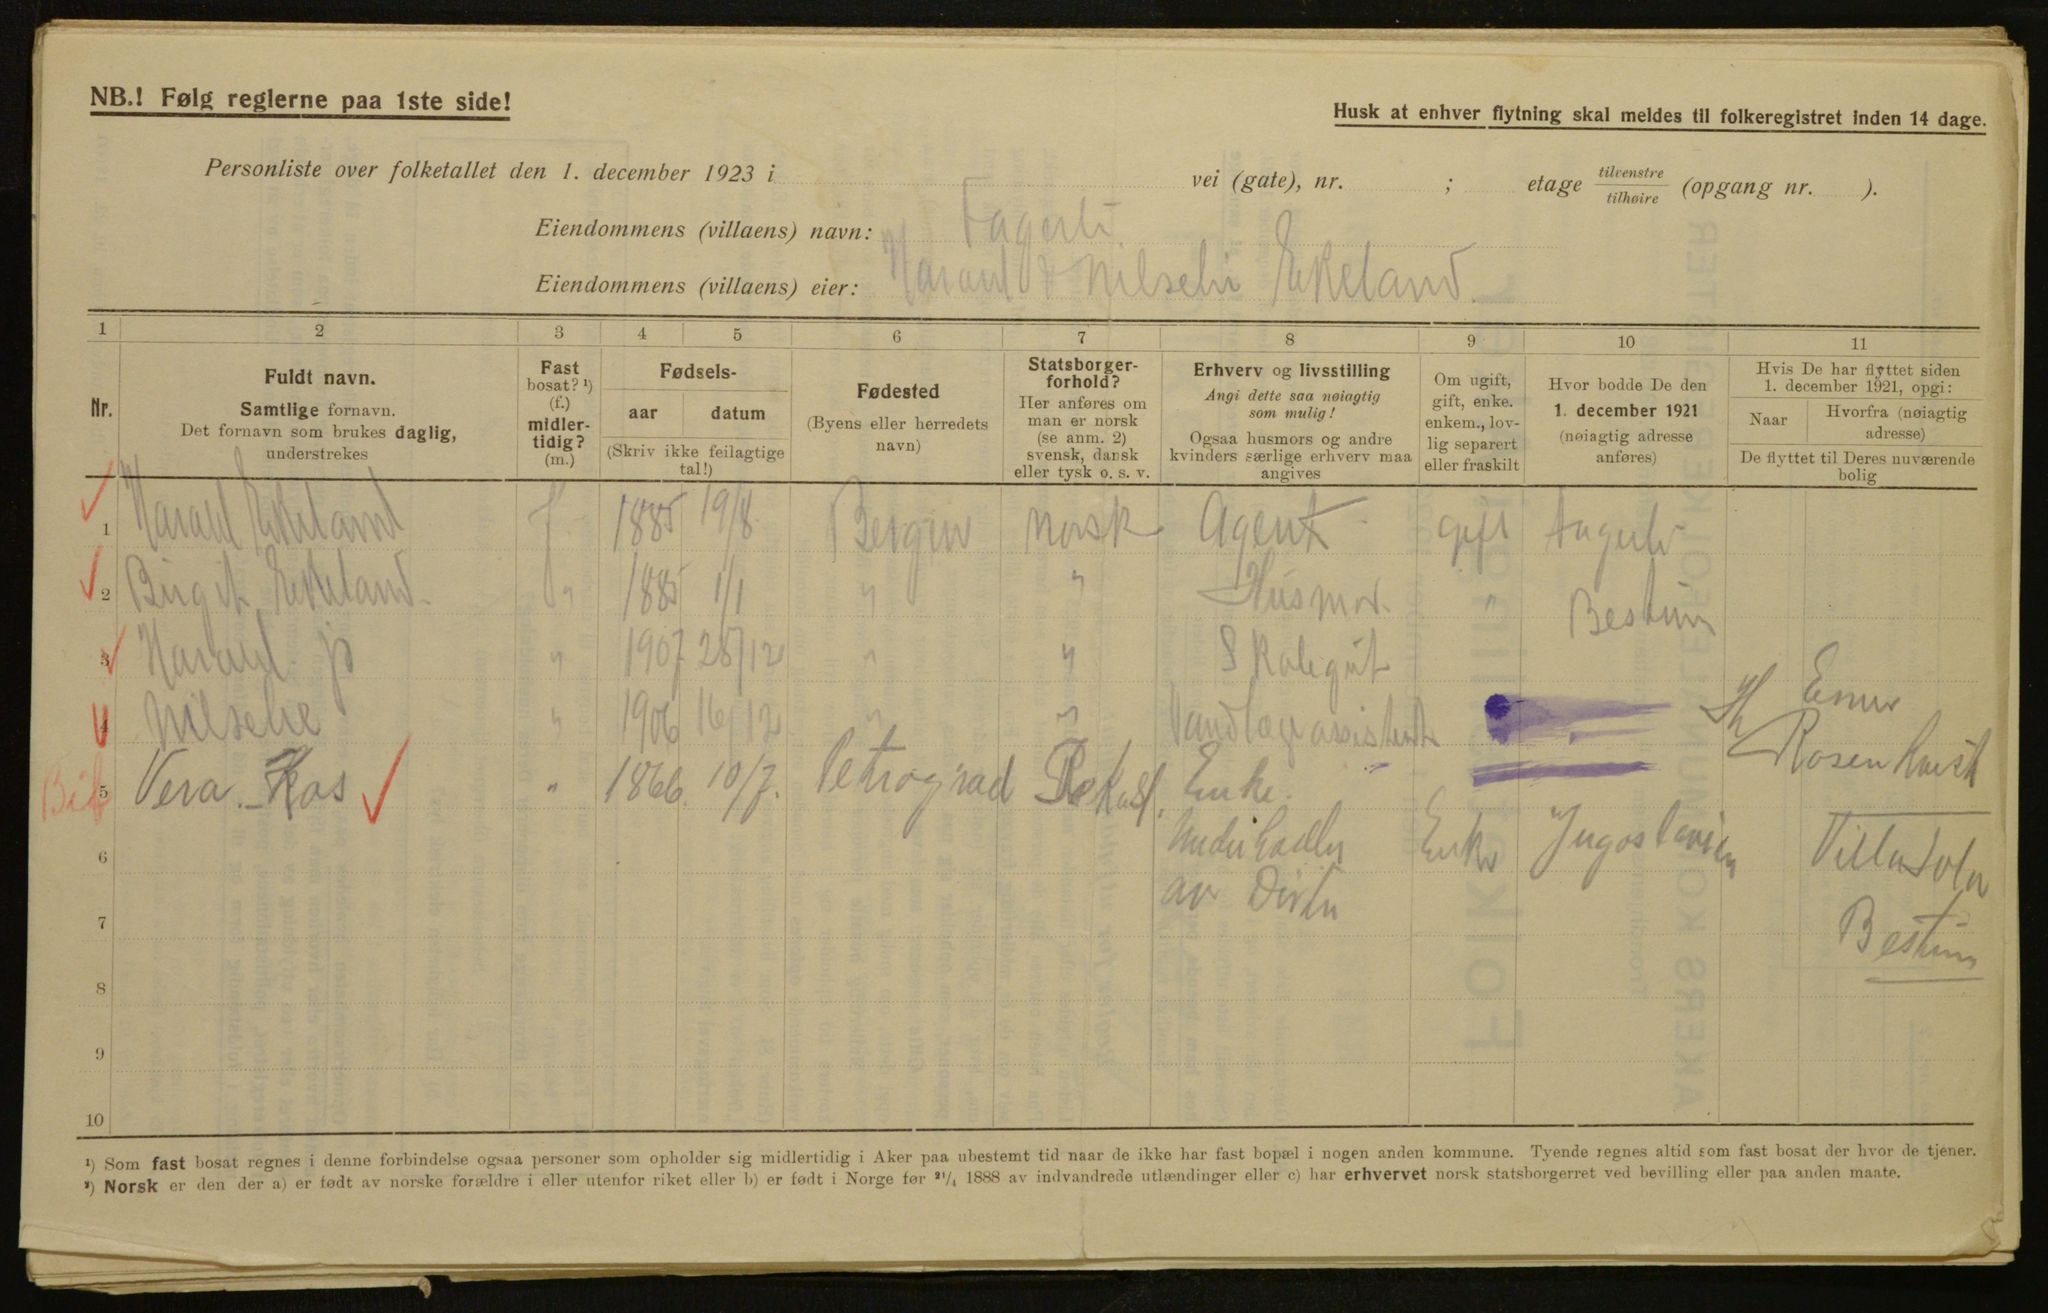 NB.! Følg reglerne paa 1ste side!
Husk at enhver flytning skal meldes til folkeregistret inden 14 dage.
Personliste over folketallet den 1. december 1923 i vei (gate), nr. ; etage tilvenstre tilhøire (opgang nr. ).
Eiendommens (villaens) navn: Fagerli
Eiendommens (villaens) eier: Harald & Nilselie Ekeland.
1 2 3 4 5 6 7 8 9 10 11
Nr.
Fuldt navn.
Samtlige fornavn.
Det fornavn som brukes daglig,
understrekes
Fast
bosat? ¹)
(f.)
midler-
tidig?
(m.)
Fødsels-
aar datum
(Skriv ikke feilagtige
tal!)
Fødested
(Byens eller herredets
navn)
Statsborger-
forhold?
Her anføres om
man er norsk
(se anm. 2)
svensk, dansk
eller tysk o. s. v.
Erhverv og livsstilling
Angi dette saa nøiagtig
som mulig!
Ogsaa husmors og andre
kvinders særlige erhverv maa
angives
Om ugift,
gift, enke.
enkem., lov-
lig separert
eller fraskilt
Hvor bodde De den
1. december 1921
(nøiagtig adresse
anføres)
Hvis De har flyttet siden
1. december 1921, opgi:
Naar Hvorfra (nøiagtig
adresse)
De flyttet til Deres nuværende
bolig
1 Harald Ekeland f 1885 19/8 Bergen norsk Agent gift Fagerli
2 Birgit Ekeland " 1885 1/1 " " Husmor. " Bestum
3 Harald jr " 1907 28/12 " " Skolegut
4 Nilselie " 1906 16/12 " " Tandlægeassistent
5 Vera Kos " 1866 10/7. Petrograd Enke.
Rosenkvist
6 av Enke Jugoslavien Villa
7 Bestum
8
9
10
¹) Som fast bosat regnes i denne forbindelse ogsaa personer som opholder sig midlertidig i Aker paa ubestemt tid naar de ikke har fast bopæl i nogen anden kommune. Tyende regnes altid som fast bosat der hvor de tjener.
²) Norsk er den der a) er født av norske forældre i eller utenfor riket eller b) er født i Norge før ²¹/₄ 1888 av indvandrede utlændinger eller c) har erhvervet norsk statsborgerret ved bevilling eller paa anden maate.